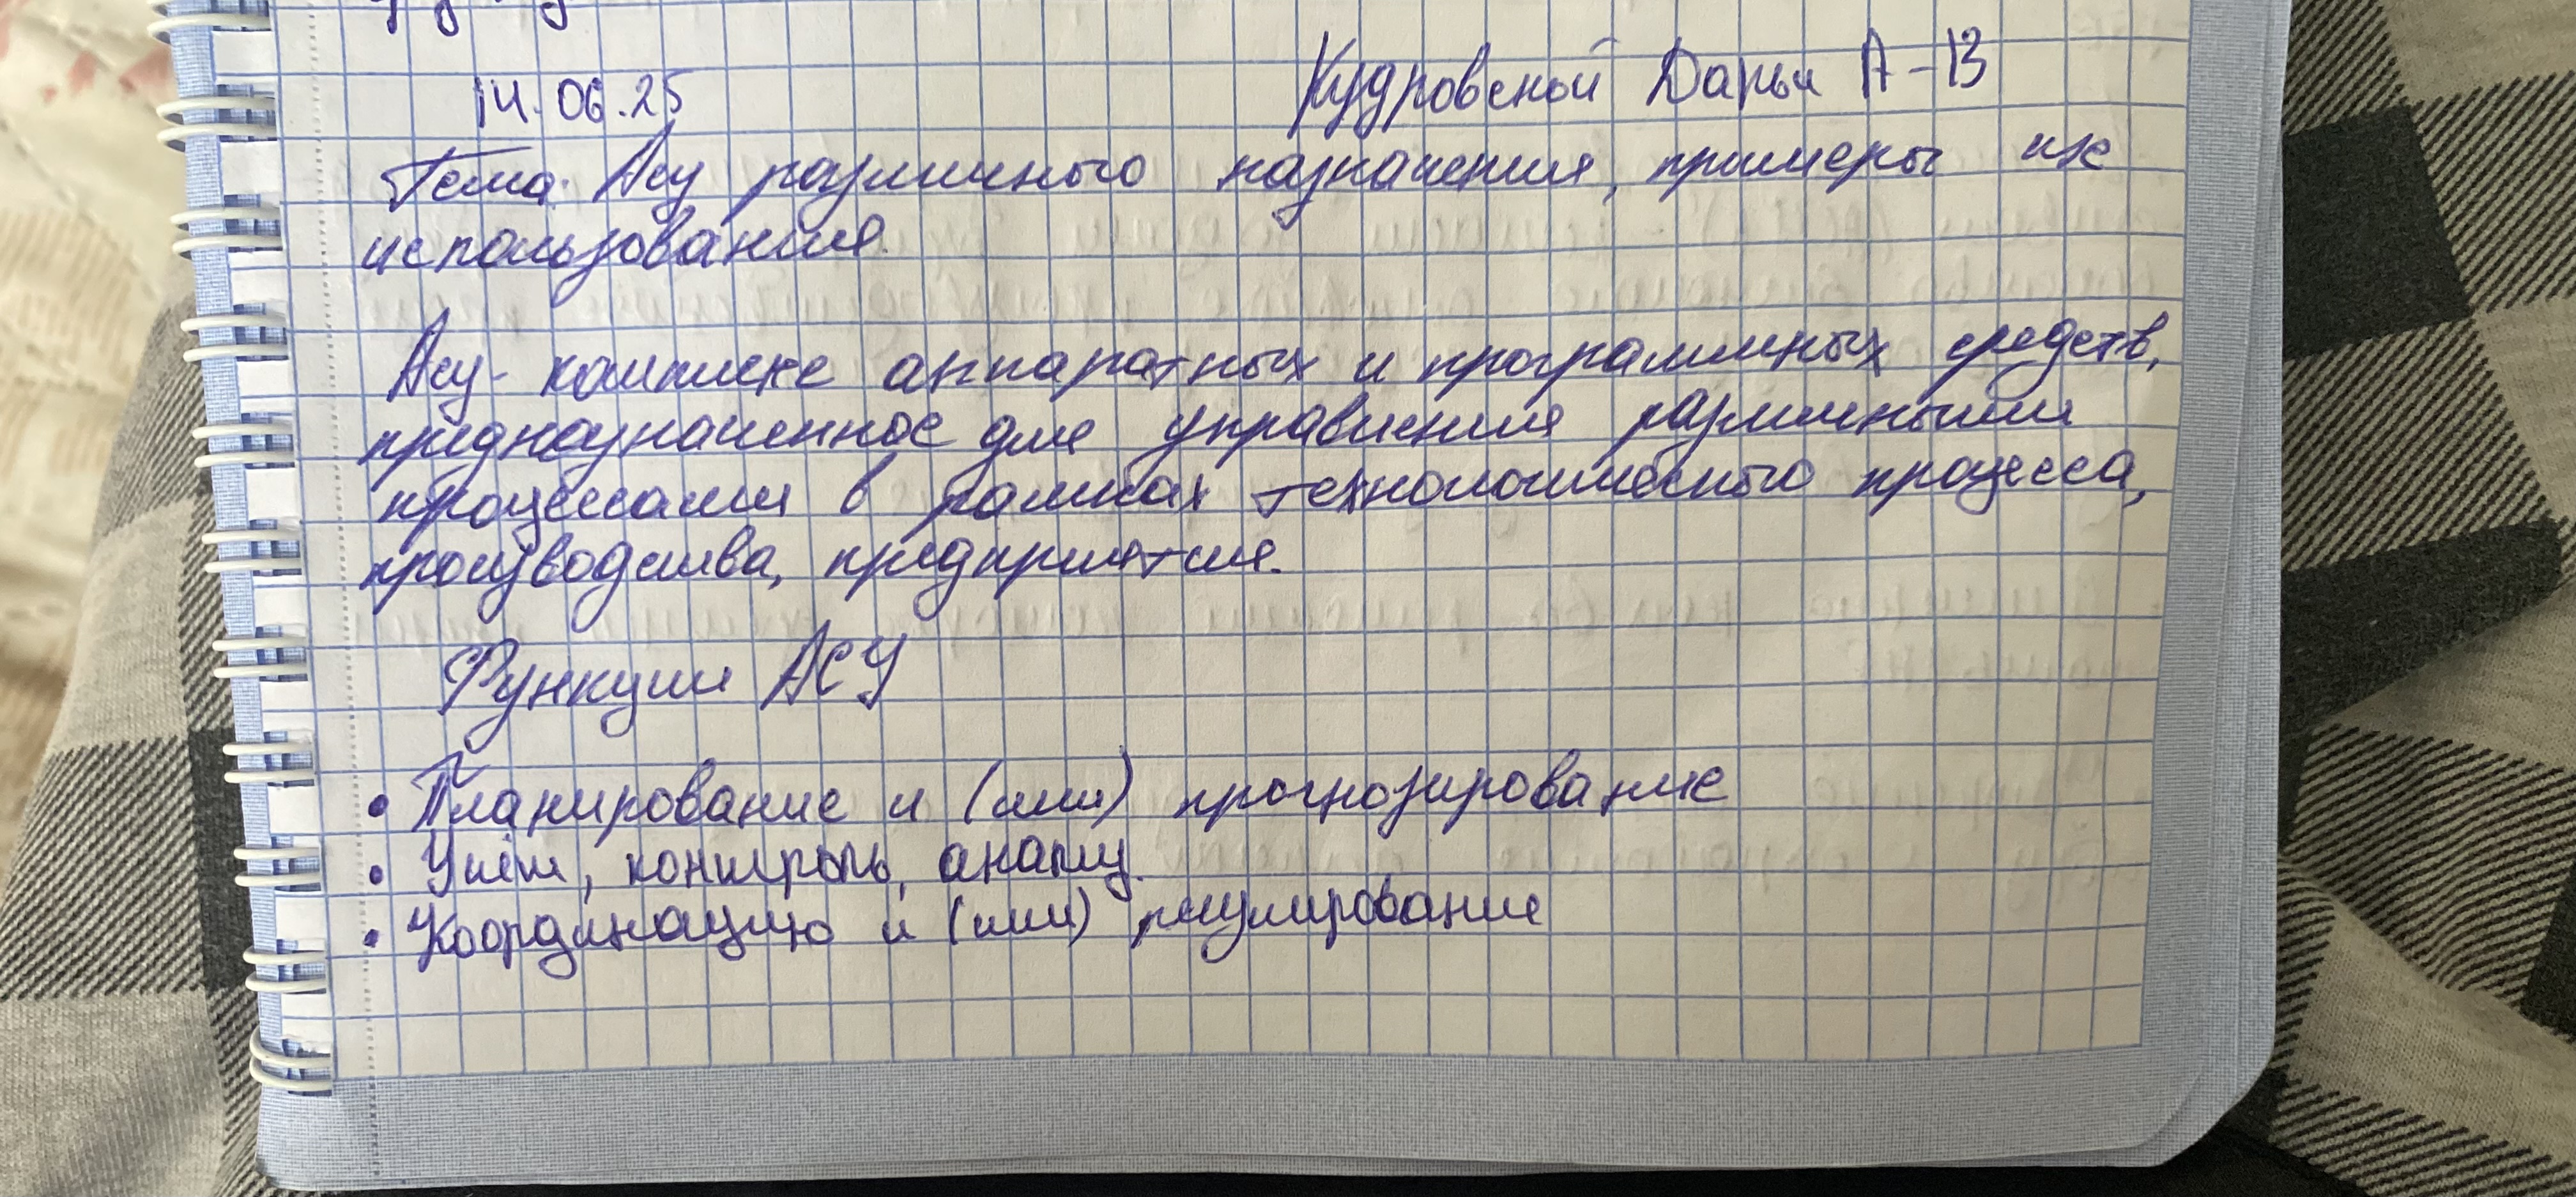 14.06.25
Кудровской Дарьи А-13
Тема: Асу различного назначения, примеры их
использования.
Асу - комплекс аппаратных и программных средств,
предназначенное для управления различными
процессами в рамках технологического процесса,
производства, предприятия.
Функции АСУ
• Планирование и (или) прогнозирование
• Учёт, контроль, анализ.
• Координацию и (или) регулирование